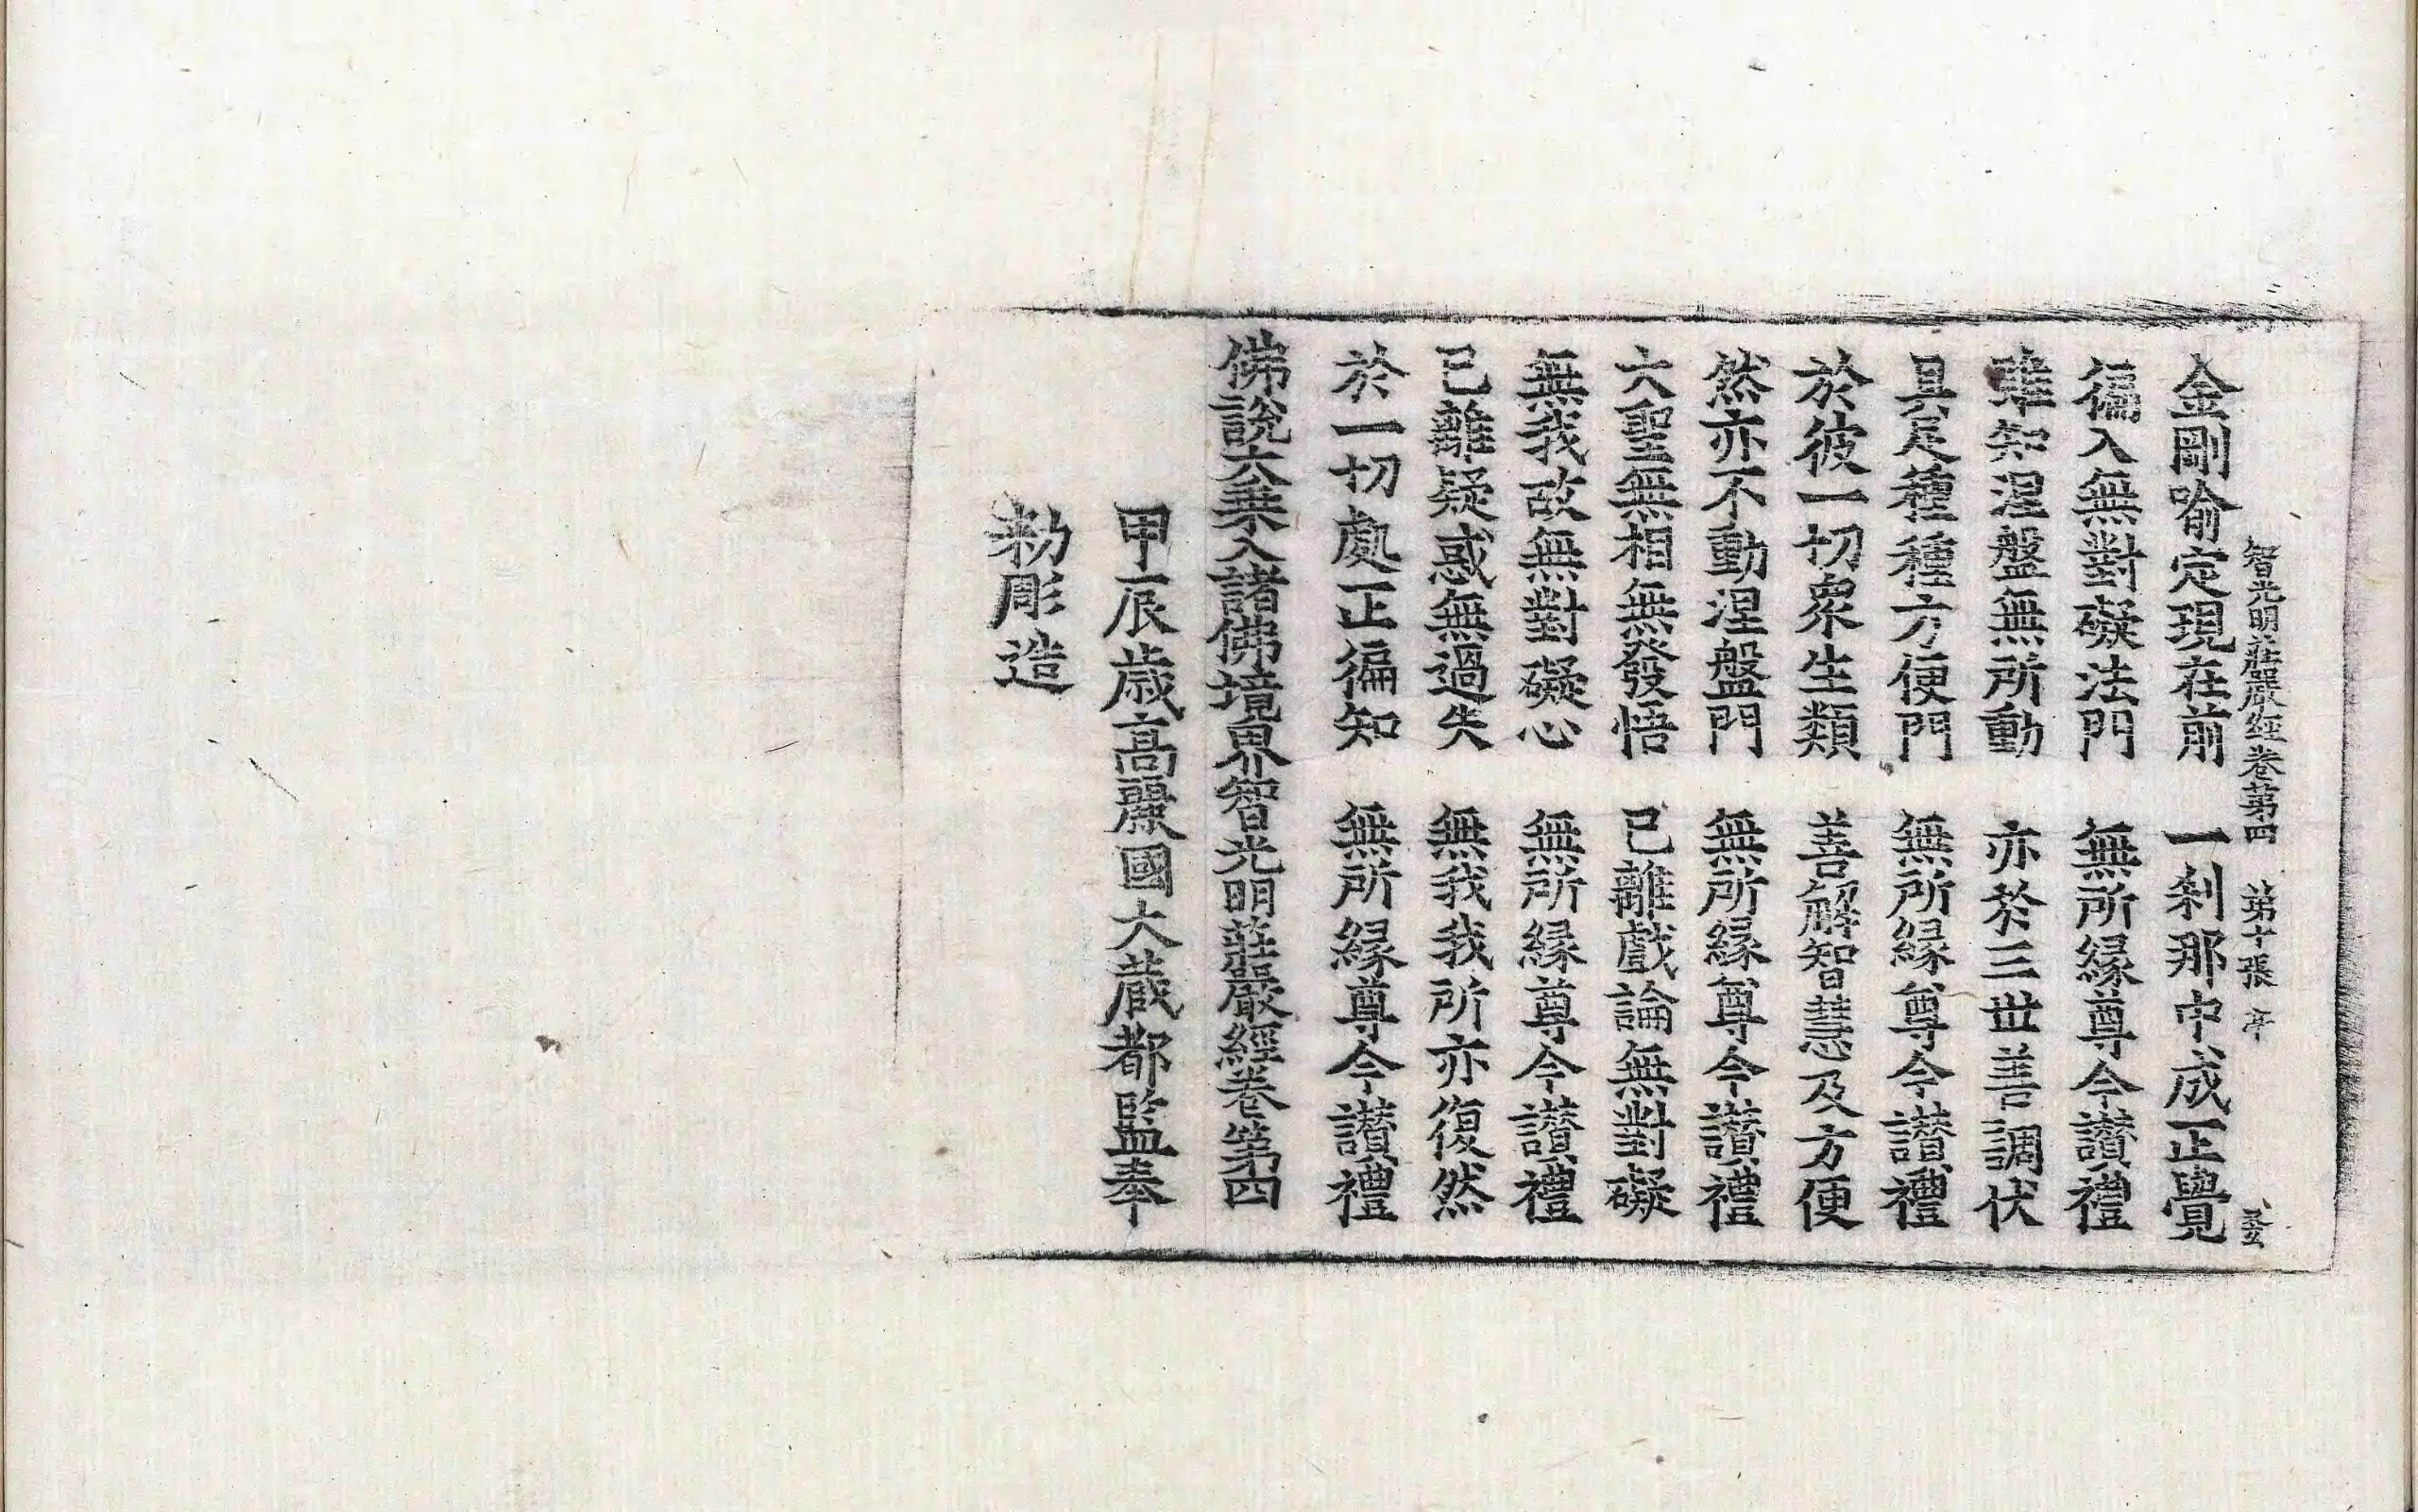 智光明莊嚴經卷第四 第十張
金剛喻定現在前 一剎那中成正覺
徧入無對礙法門 無所緣尊今讚禮
雖知涅盤無所動 亦於三世善調伏
具足種種方便門 無所緣尊今讚禮
於彼一切衆生類 善解智慧及方便
然亦不動涅盤門 無所緣尊今讚禮
大聖無相無發悟 已離戲論無對礙
無我故無對礙心 無所緣尊今讚禮
已離疑惑無過失 無我我所亦復然
於一切處正徧知 無所緣尊今讚禮
佛說大乘入諸佛境界智光明莊嚴經卷第四
甲辰歲高麗國大藏都監奉
勑彫造